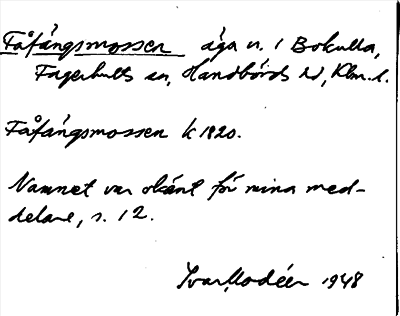 Fåfängsmossen äga n. 1 Bokulla,
Fagerhults sn, Handbörds hd, Klm. l.
Fåfängsmossen k 1820.
Namnet var okänt för mina med-
delare, s. 12.
Ivar Modéer 1948